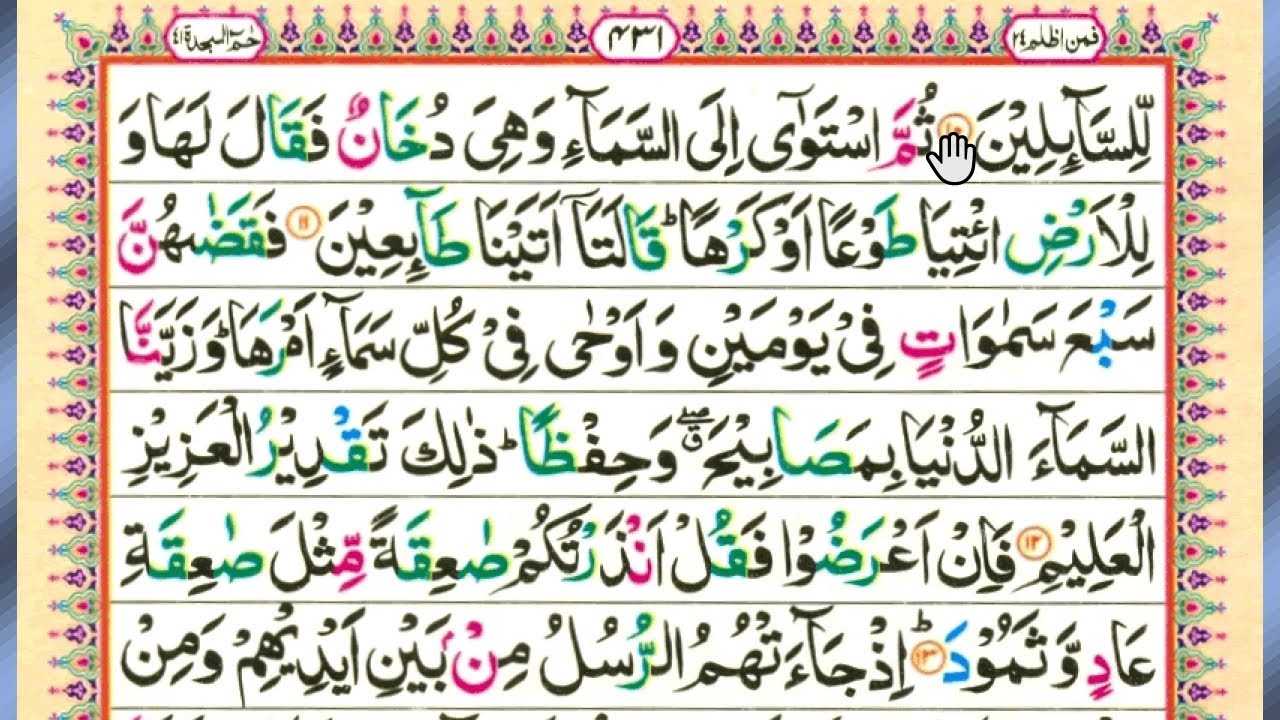 فمن اظلم ٢٤ ۴۳۱ حٰم السجدة ٤١
لِّلسَّآىِٕلِیْنَ ۱۰ ثُمَّ اسْتَوٰۤی اِلَی السَّمَآءِ وَهِیَ دُخَانٌ فَقَالَ لَهَا وَ
لِلْاَرْضِ ائْتِیَا طَوْعًا اَوْ كَرْهًا ؕ قَالَتَاۤ اَتَیْنَا طَآىِٕعِیْنَ ۱۱ فَقَضٰىهُنَّ
سَبْعَ سَمٰوَاتٍ فِیْ یَوْمَیْنِ وَ اَوْحٰی فِیْ كُلِّ سَمَآءٍ اَمْرَهَا ؕ وَ زَیَّنَّا
السَّمَآءَ الدُّنْیَا بِمَصَابِیْحَ ۖۗ وَ حِفْظًا ؕ ذٰلِكَ تَقْدِیْرُ الْعَزِیْزِ
الْعَلِیْمِ ۱۲ فَاِنْ اَعْرَضُوْا فَقُلْ اَنْذَرْتُكُمْ صٰعِقَةً مِّثْلَ صٰعِقَةِ
عَادٍ وَّ ثَمُوْدَ ؕ ۱۳ اِذْ جَآءَتْهُمُ الرُّسُلُ مِنْۢ بَیْنِ اَیْدِیْهِمْ وَ مِنْ